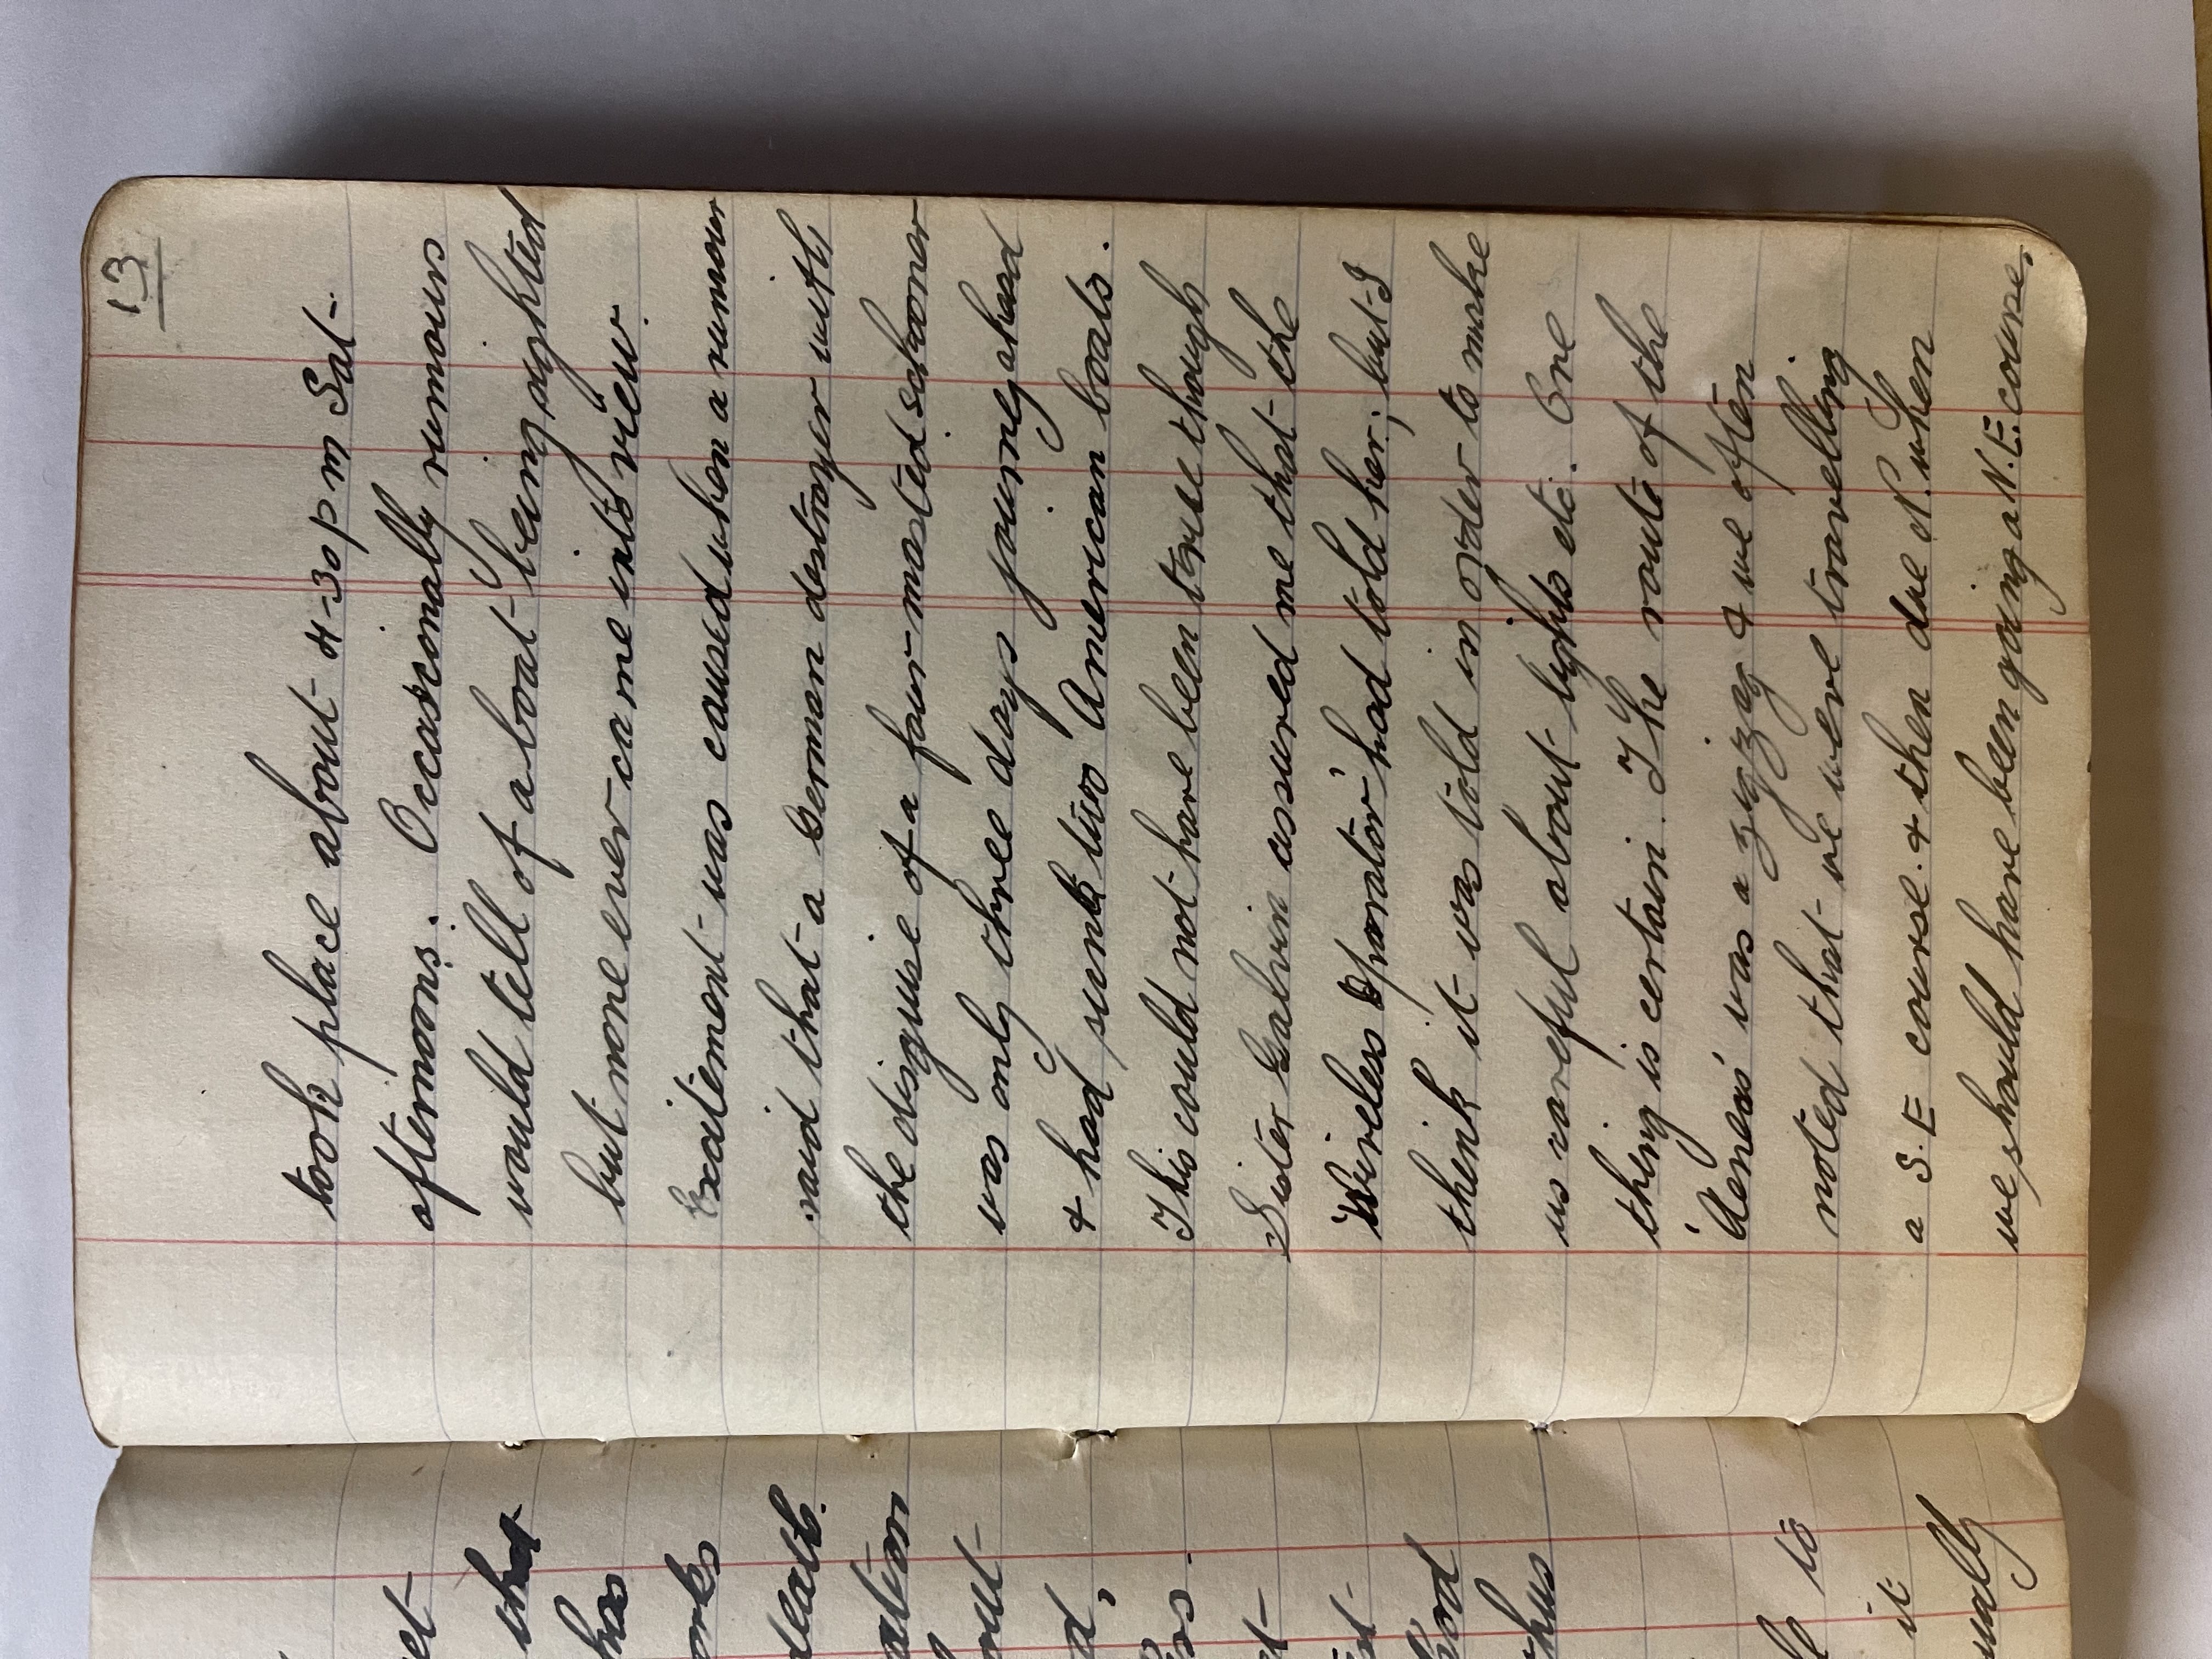 13
took place about 4-30 pm Sat-
afternoons. Occasionally rumours
would tell of a boat being sighted
but none ever came into view.
Excitement was caused when a rumour
said that a German destroyer with
the disguise of a four-masted schooner
was only three days journey ahead
& had sunk two American boats.
This could not have been true though
Sister Galvin assured me that the
'Wireless Operator' had told her; but I
think it was told in order to make
us careful about lights etc. One
thing is certain. The route of the
'Aeneas' was a zigzag & we often
noted that we were travelling
a S.E course. & then due N. when
we should have been going a N.E. course.
what
has
orks
death.
ation
out
d,
ord
thus
to
it
ually